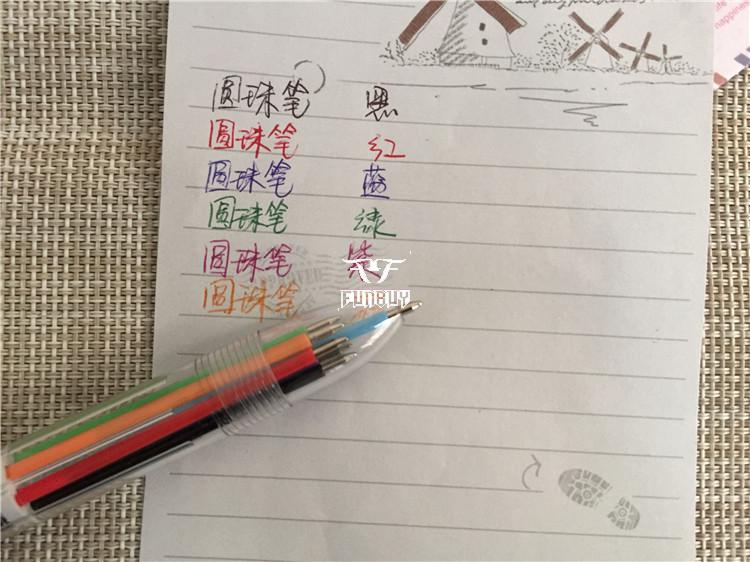 圆珠笔 黑
圆珠笔 红
圆珠笔 蓝
圆珠笔 绿
圆珠笔 紫
圆珠笔
FUNBUY